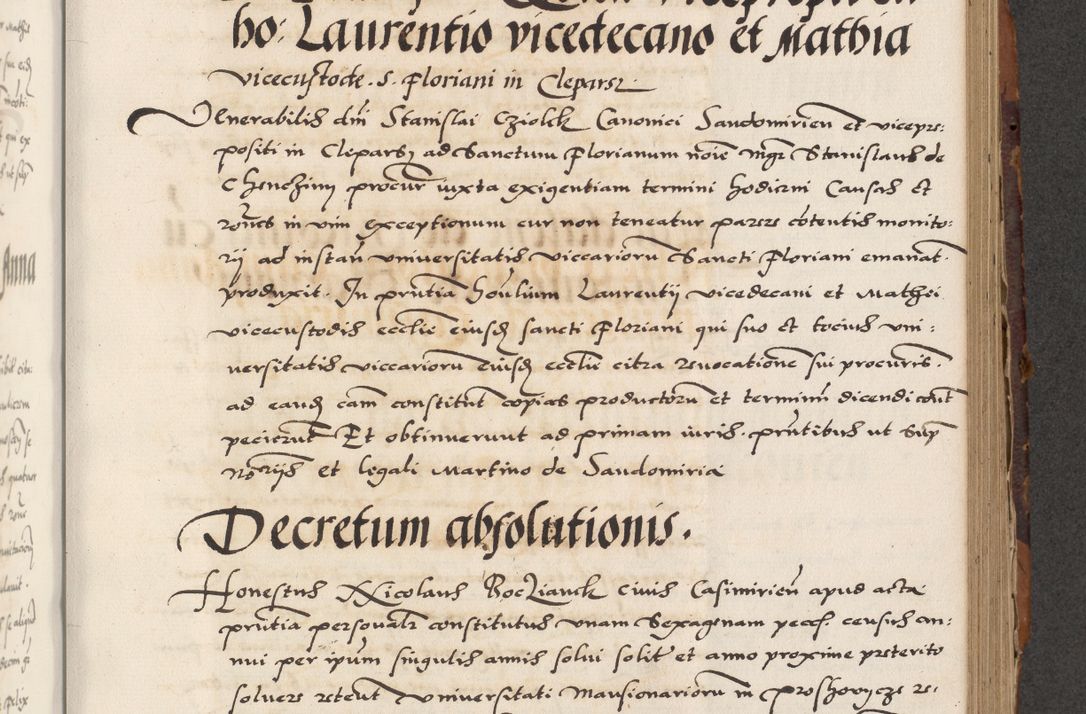 ho: Laurentio vicedecano et Mathia
vicecustode. S. Floriani in Cleparz.
Venerabilis dni Stanislai Cziolek Canonici Sandomirien et vicepre-
positi in Cleparz ad Sanctum Florianum noie mgr Stanislaus de
Chenchiny procur iuxta exigentiam termini hodierni Causas et
rones in vim exceptionum cur non teneatur parere cotentis monito:
rij ad instan universitatis viccarioru Sancti Floriani emanat.
produxit. In pntia honlium Laurentij vicedecani et Mathei
vicecustodis ecclie eiusd sancti Floriani qui suo et tocius uni:
versitatis viccarioru eiusd ecclie citra revocatione sui procuris.
ad eand cam constitut copias productoru et terminu dicendi cont
pecierut Et obtinuerunt ad primam iuris. pntibus ut Sup
Norijs et legali Martino de Sandomiria
Decretum absolutionis.
Honestus Nicolaus Boczianek civis Casimirien apud acta
pntia personalr constitutus unam Sexagenam pecc census an:
nui per ipsum singulis annis solui solit et anno proxime preterito
solvere retent Universitati Mansionarioru in Proshovycze re: